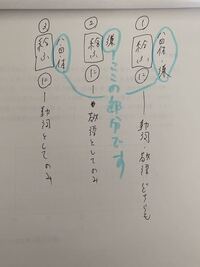 ①
給ふ
謙
動詞・敬語 どちらも
②
給ふ
謙
敬語としてのみ
ここの部分です
③
給ふ
動詞としてのみ